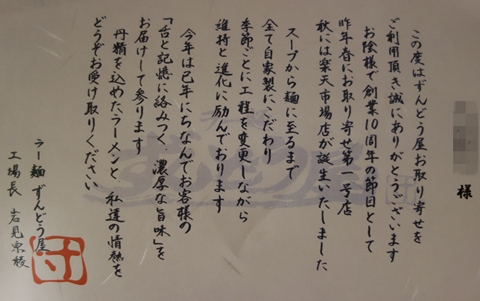 様
この度はずんどう屋お取り寄せを
ご利用頂き誠にありがとうございます
お陰様で創業10周年の節目として
昨年春にお取り寄せ第一号店
秋には楽天市場店が誕生いたしました
スープから麺に至るまで
全て自家製にこだわり
季節ごとに工程を変更しながら
維持と進化に励んでおります
今年は巳年にちなんでお客様の
「舌と記憶に絡みつく、濃厚な旨味」を
お届けして参ります
丹精を込めたラーメンと、私達の情熱を
どうぞお受け取りください
ラー麺 ずんどう屋
工場長 岩見